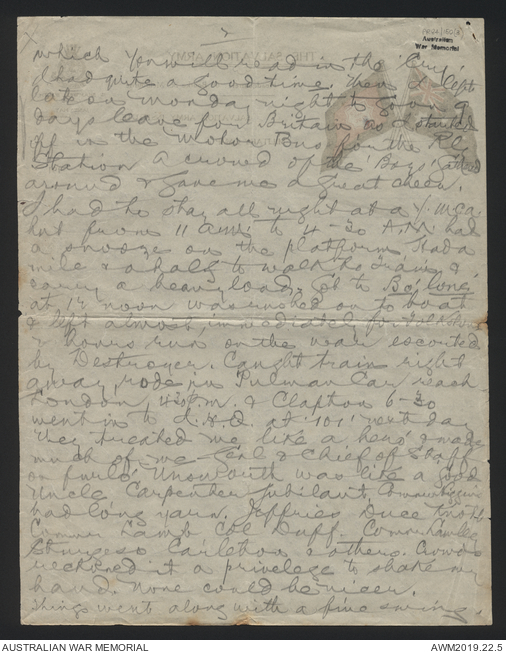 7
Australian
War Memorial
which you will read in the 'Cry'
I had quite a good time. Then I left
late on Monday night to go on 9
days leave for Britain as I started
off in the Motor Bus for the R.
Station A crowd of the 'Boys'
around & gave me a great cheer.
I had to stay all night at a Y.M.C.A
hut from 11 a.m. to 4-30 A.M. had
a snooze on the platform. Had a
mile & a half to walk to Train &
carry a heavy load. Got to Bo'long'
at 12 noon was rushed on to boat
& left almost immediately for Folkstone
2 hours run on the water escorted
by Destroyer. Caught train right
away rode in Pulman Car reach
London 4-30 p.m. & Clapton 6-30
went in to I.H.Q. at '101' next day
They treated me like a hero & made
much of me Genl & Chief of Staff
on furlo' Unsworth was like a Good
Uncle Carpenter Jubilant.
had long yarn. Jeffries Duce
Commr Lamb Col Duff. Commr
Sturgess Carleton & others. Crowds
reckoned it a privelege to shake my
hand. None could be nicer.
Things went along with a fine swing.
AUSTRALIAN WAR MEMORIAL
AWM2019.22.5